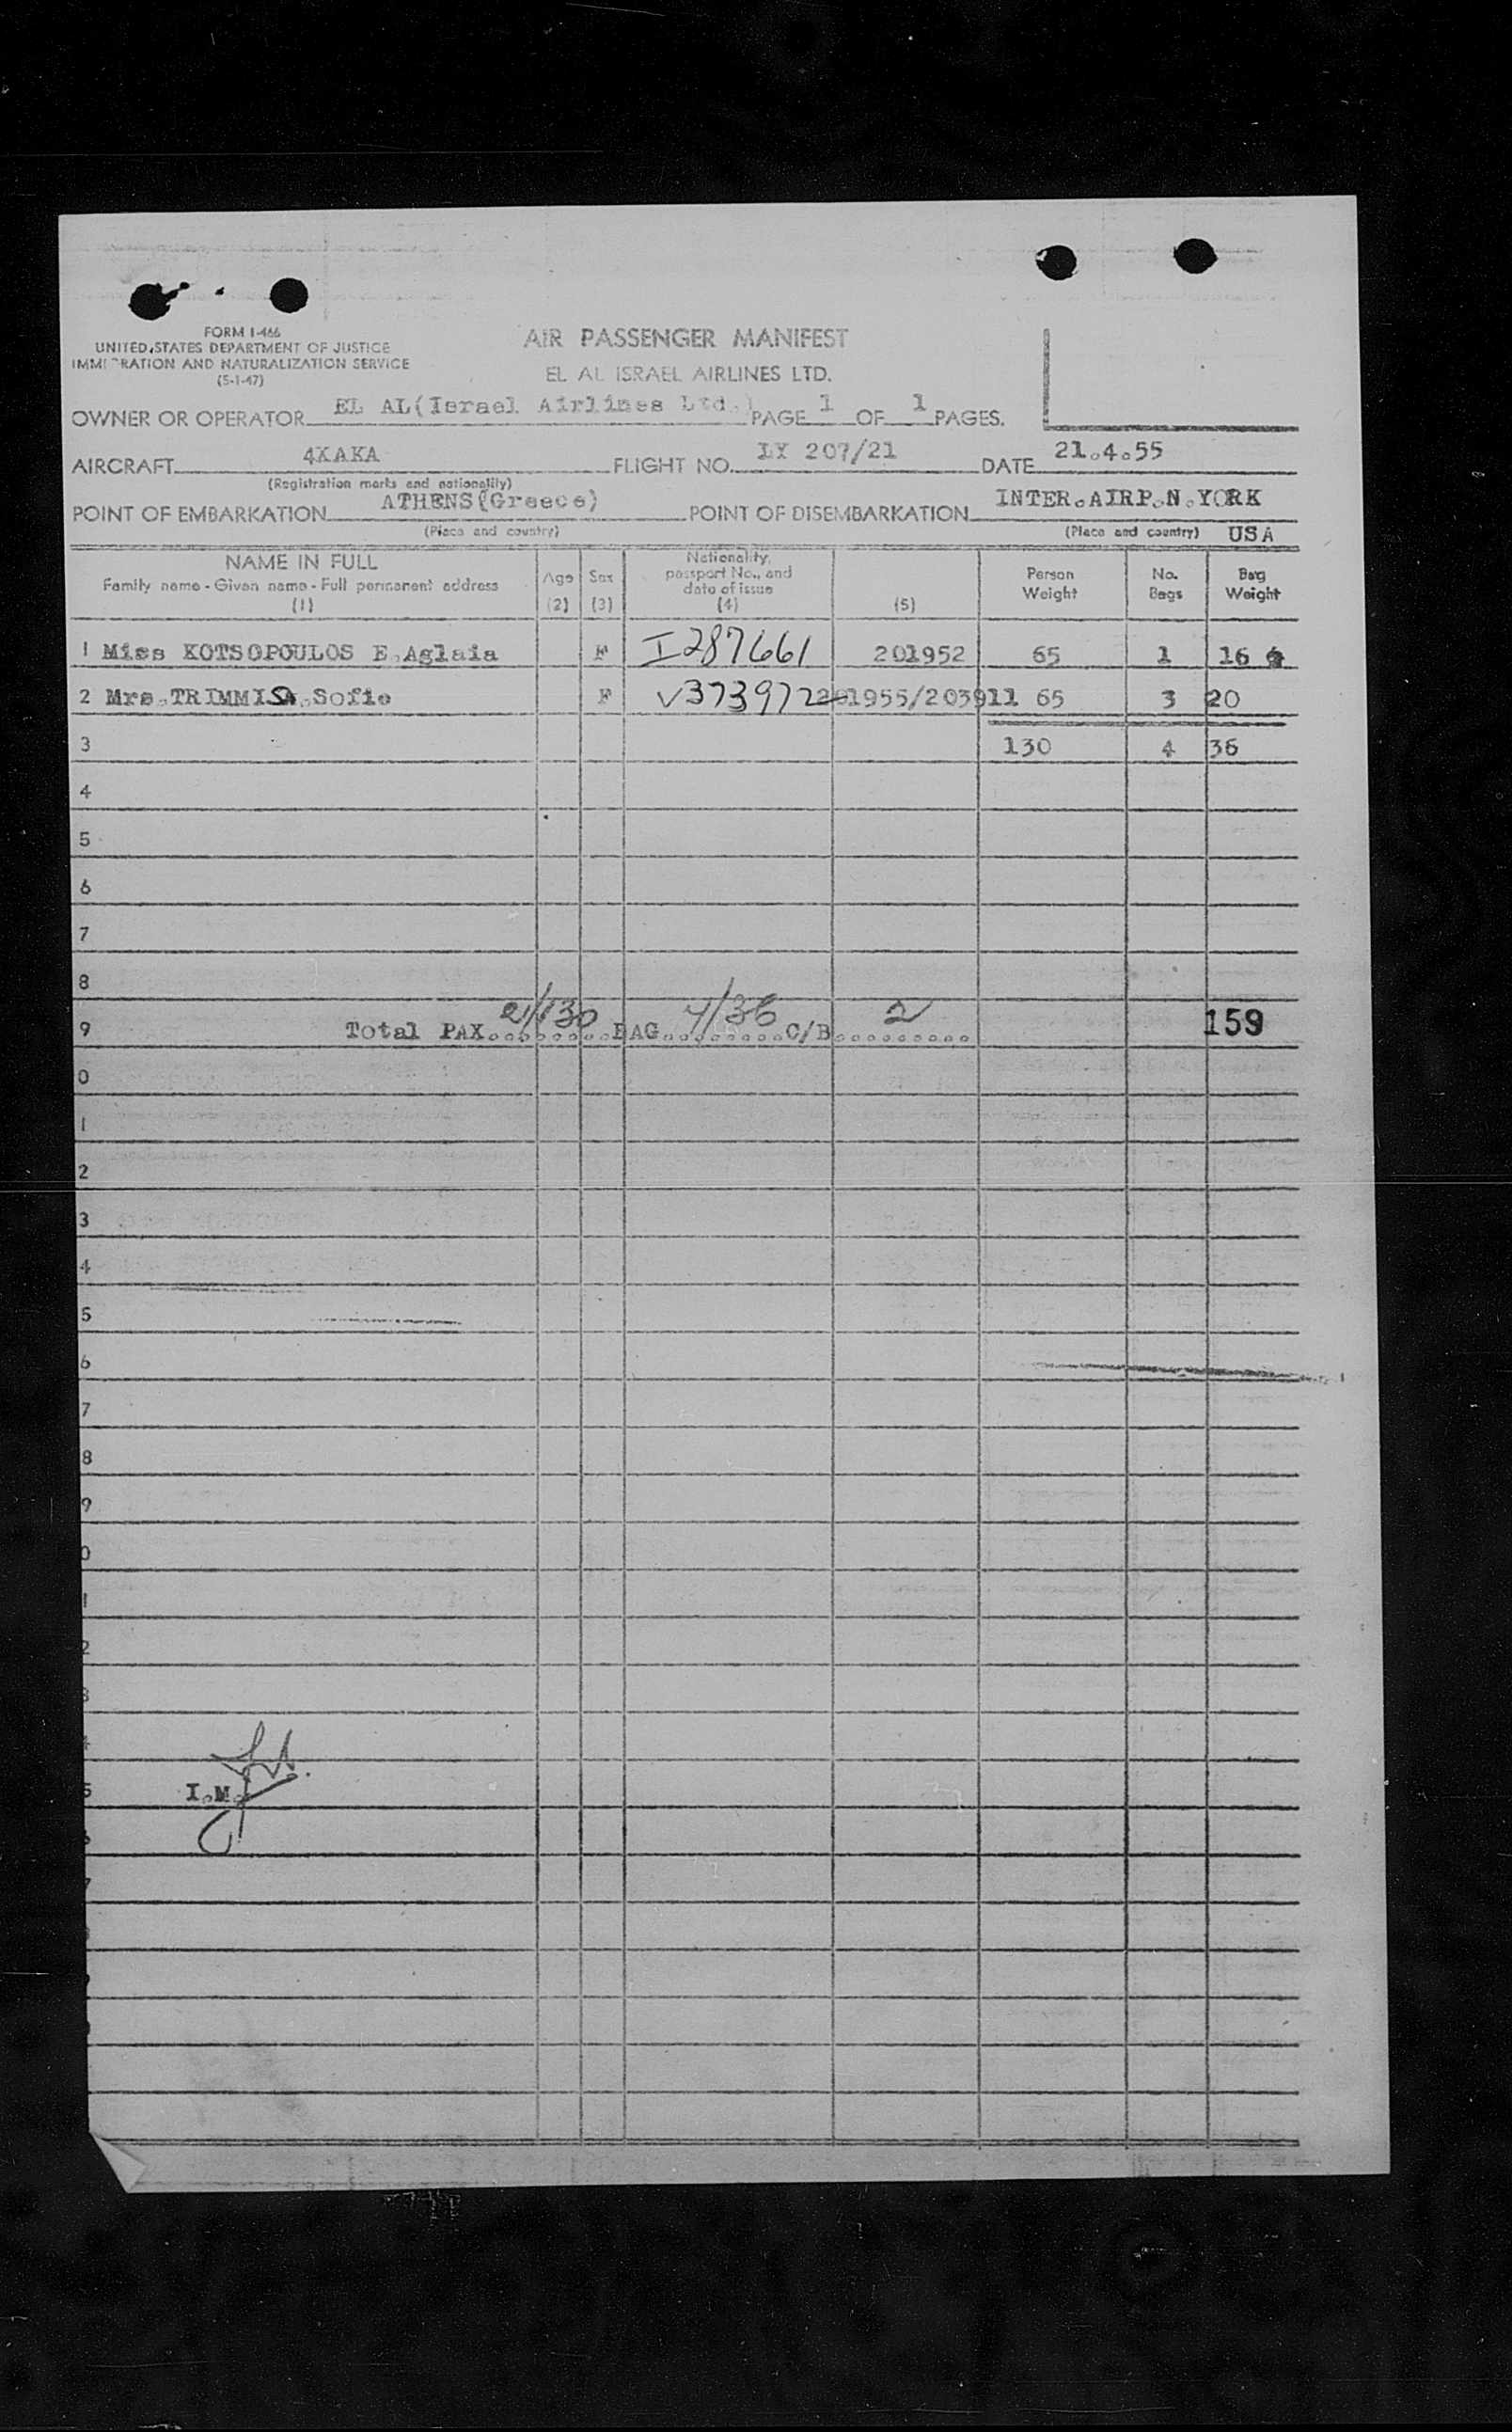 FORM I-466
UNITED STATES DEPARTMENT OF JUSTICE
IMMIGRATION AND NATURALIZATION SERVICE
(5-1-47)
AIR PASSENGER MANIFEST
EL AL ISRAEL AIRLINES LTD.
OWNER OR OPERATOR EL AL(Israel Airlines Ltd.) PAGE 1 OF 1 PAGES.
AIRCRAFT 4XAKA FLIGHT NO. LY 207/21 DATE 21.4.55
(Registration marks and nationality)
POINT OF EMBARKATION ATHENS(Greece) POINT OF DISEMBARKATION INTER.AIRP.N.YORK
(Place and country) (Place and country) USA
NAME IN FULL
Family name - Given name - Full permanent address
(1)
Age
(2)
Sex
(3)
Nationality,
passport No., and
date of issue
(4)
(5)
Person
Weight
No.
Bags
Bag
Weight
1 Miss KOTSOPOULOS E.Aglaia F I287661 201952 65 1 16
2 Mrs.TRIMMIS.Sofie F V373972 201955/203911 65 3 20
3 130 4 36
4
5
6
7
8
9 Total PAX 2/130 BAG 4/36 C/B 2 159
0
1
2
3
4
5
6
7
8
9
0
1
2
3
5 I.M.